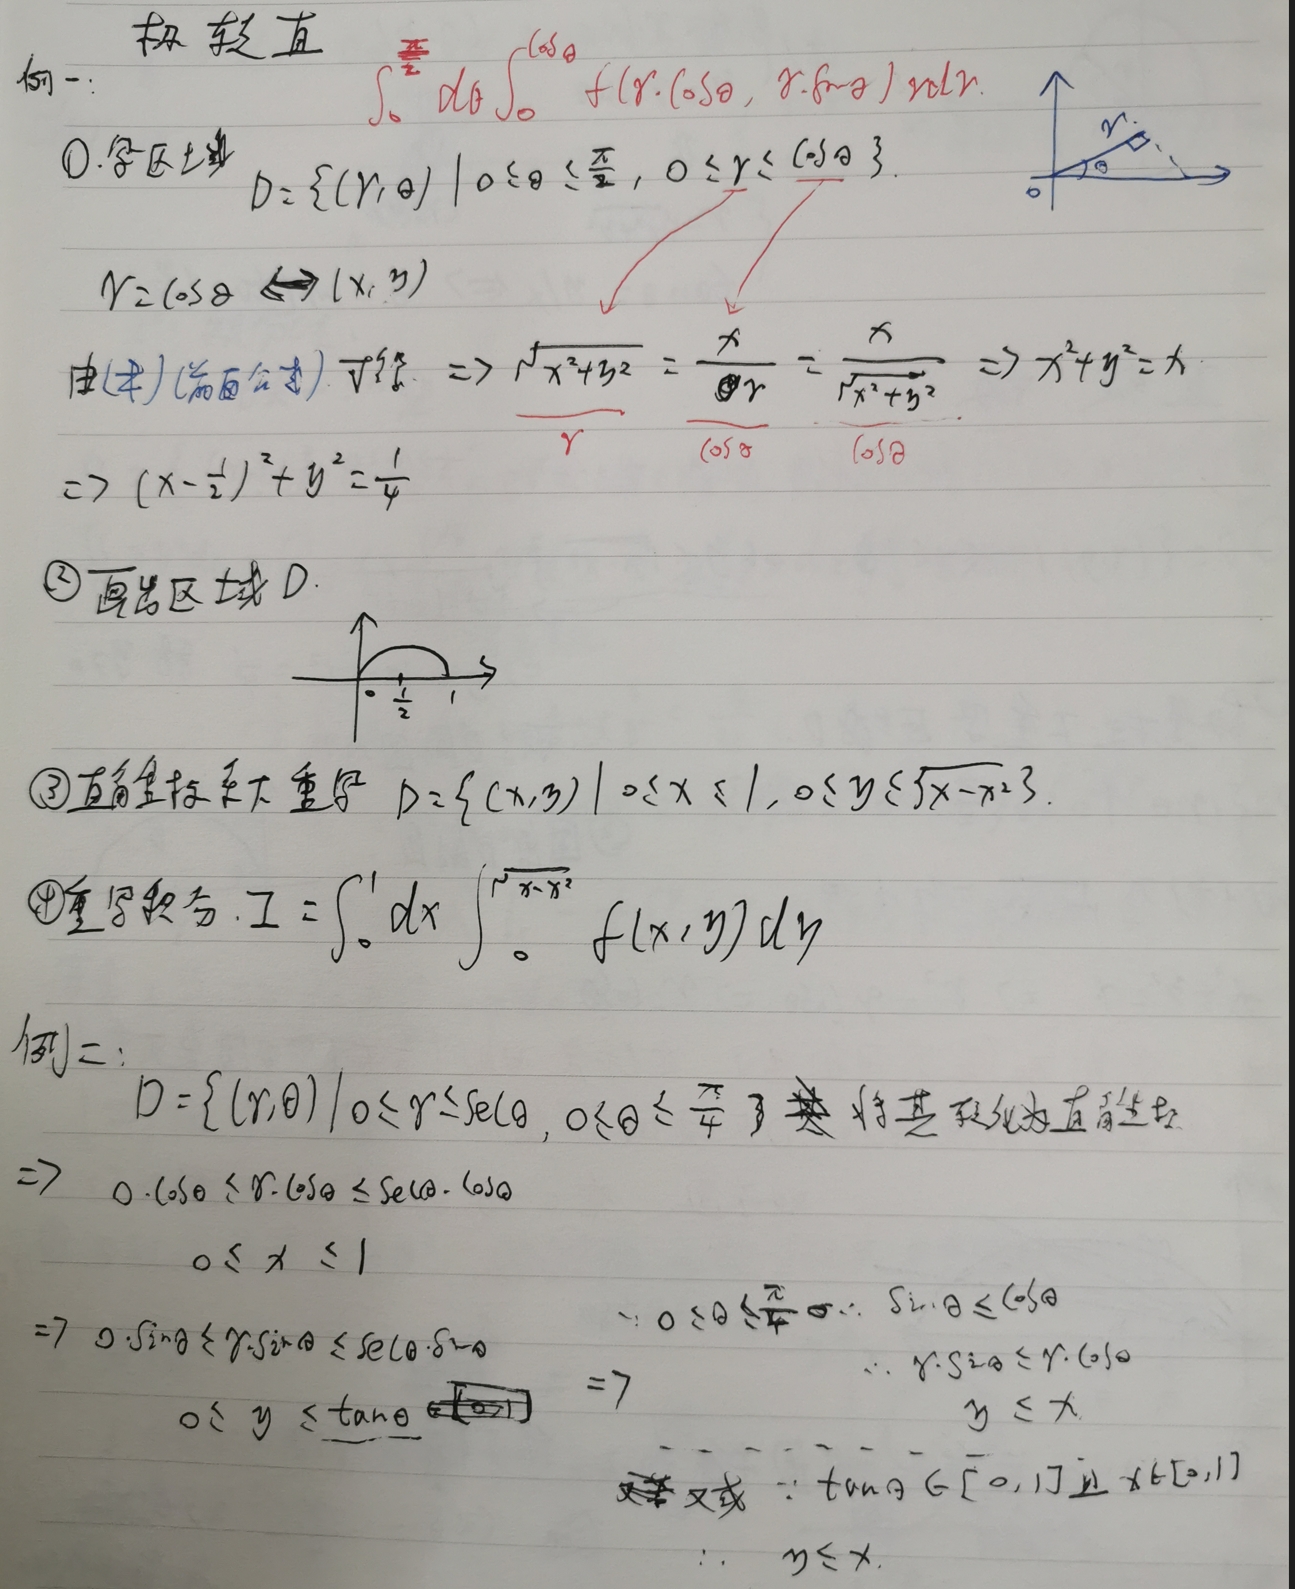 极转直
例一:
∫₀^{π/2} dθ ∫₀^{cosθ} f(r·cosθ, r·sinθ) rdr.
①.写区域 D={(r,θ) | 0≤θ≤π/2, 0≤r≤cosθ}.
r
θ
0
r=cosθ ⟺ (x,y)
由(本)(前面公式)可得 => √(x²+y²) = x/r = x/√(x²+y²) => x²+y²=x
r cosθ cosθ
=> (x-1/2)²+y²=1/4
②画出区域D.
0 1/2 1
③直角坐标系下重写 D={(x,y) | 0≤x≤1, 0≤y≤√(x-x²)}.
④重写积分.I=∫₀¹ dx ∫₀^{√(x-x²)} f(x,y)dy
例二:
D={(r,θ) | 0≤r≤secθ, 0≤θ≤π/4} 将其转化为直角坐标
=> 0·cosθ≤r·cosθ≤secθ·cosθ
0≤x≤1
=> 0·sinθ≤r·sinθ≤secθ·sinθ
0≤y≤tanθ
=> ∵ 0≤θ≤π/4 ∴ sinθ≤cosθ
∴ r·sinθ≤r·cosθ
y≤x
又或 ∵ tanθ∈[0,1]且x∈[0,1]
∴ y≤x.